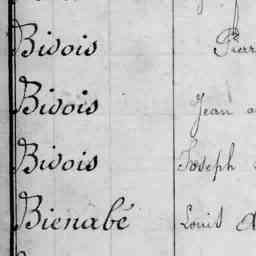 Bivois Pierr
Bivois Jean
Bivois Joseph
Bienabé Louis